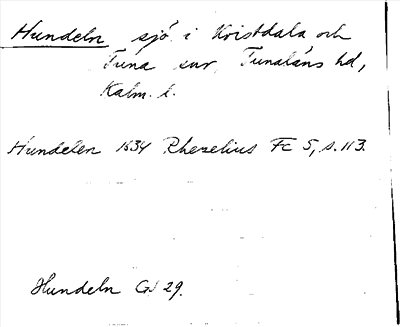 Hundeln sjö i Kristdala och
Tuna snr, Tunaläns hd,
Kalm. l.
Hundelen 1634 Rhezelius Fc 5, s. 113.
Hundeln GS 29.